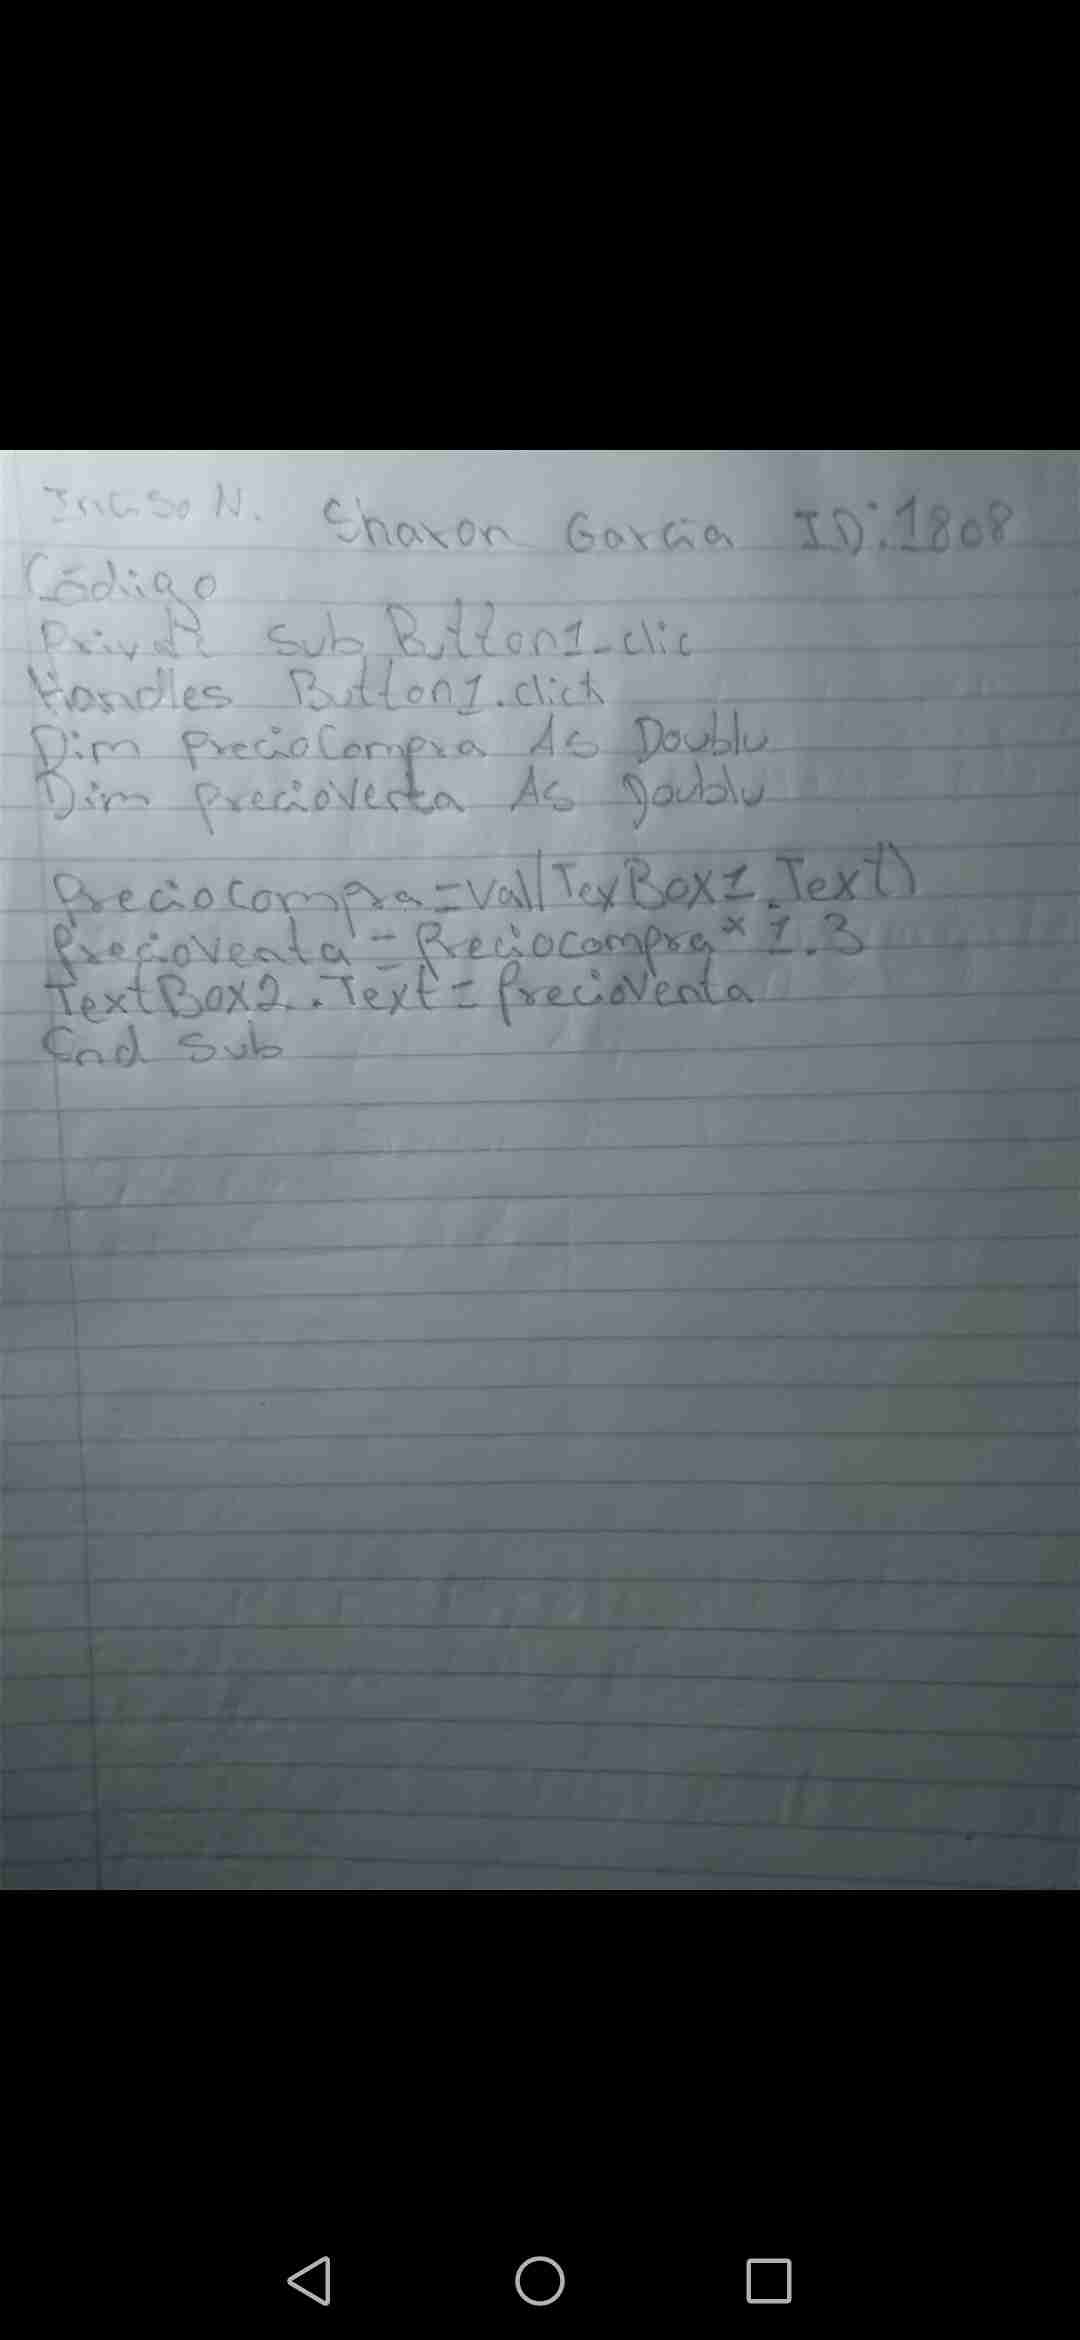 Inciso N. Sharon Garcia ID:1808
Código
Private Sub Button1-clic
Handles Button1.click
Dim precioCompra As Doublu
Dim precioVenta As Doublu
PrecioCompra=Val(TexBox1.Text)
PrecioVenta = Preciocompra * 1.3
TextBox2.Text = PrecioVenta
End Sub